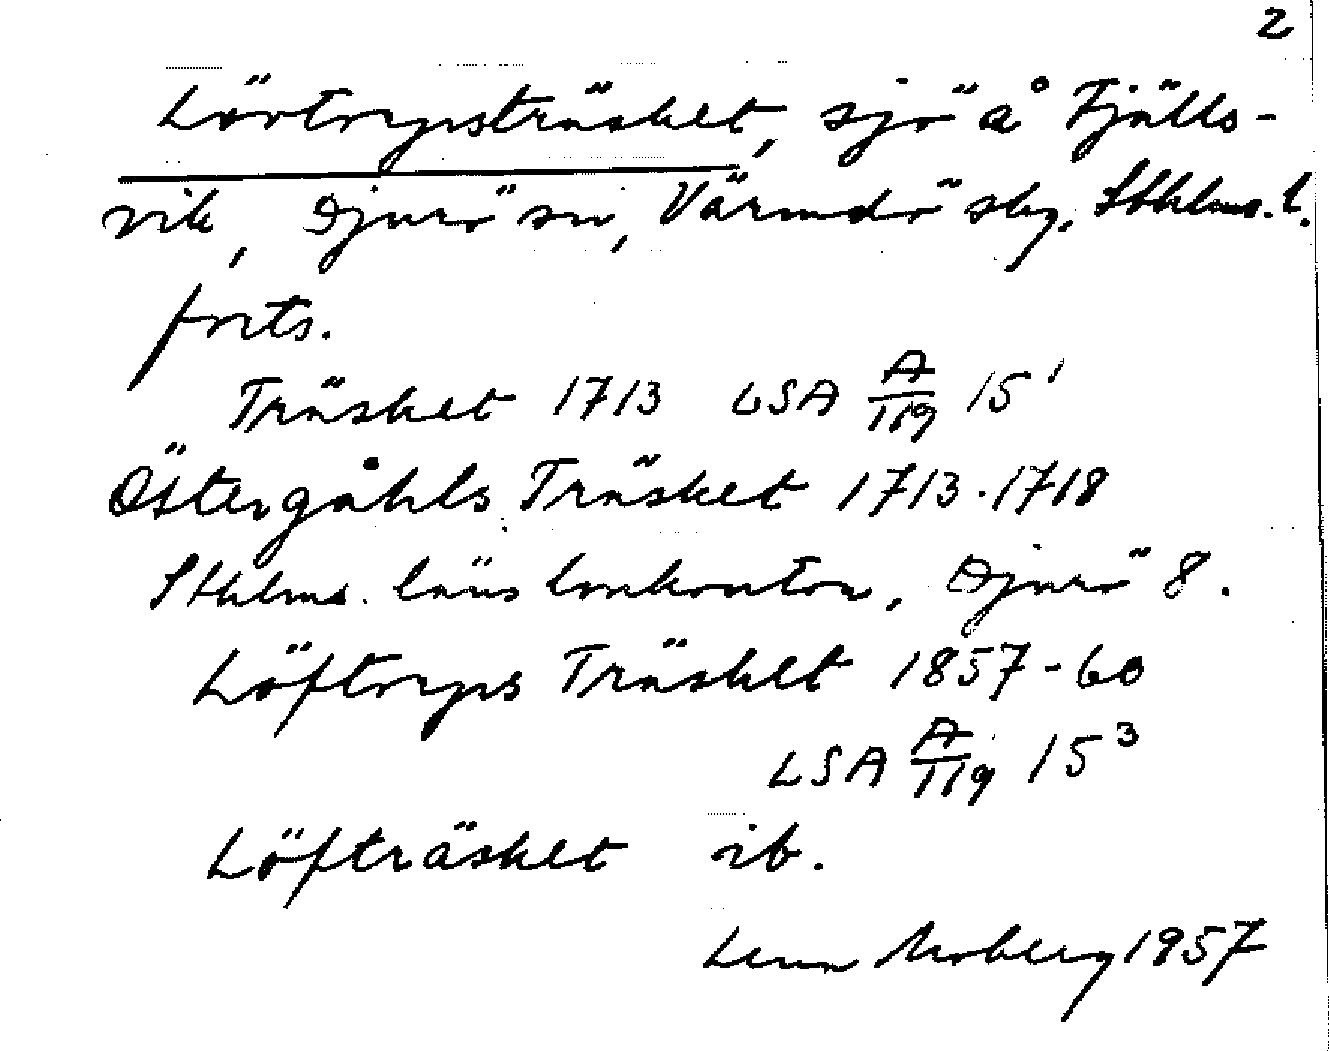 2
Lövtorpsträsket, sjö å Fjälls-
vik, Djurö sn, Värmdö skg. Sthlms. l.
forts.
Träsket 1713 LSA A/119 15¹
Östergåhls Träsket 1713-1718
Sthlms. läns lmkontor, Djurö 8.
Löftorps Träsket 1857-60
LSA A/119 15³
Löfträsket ib.
Lena Moberg 1957